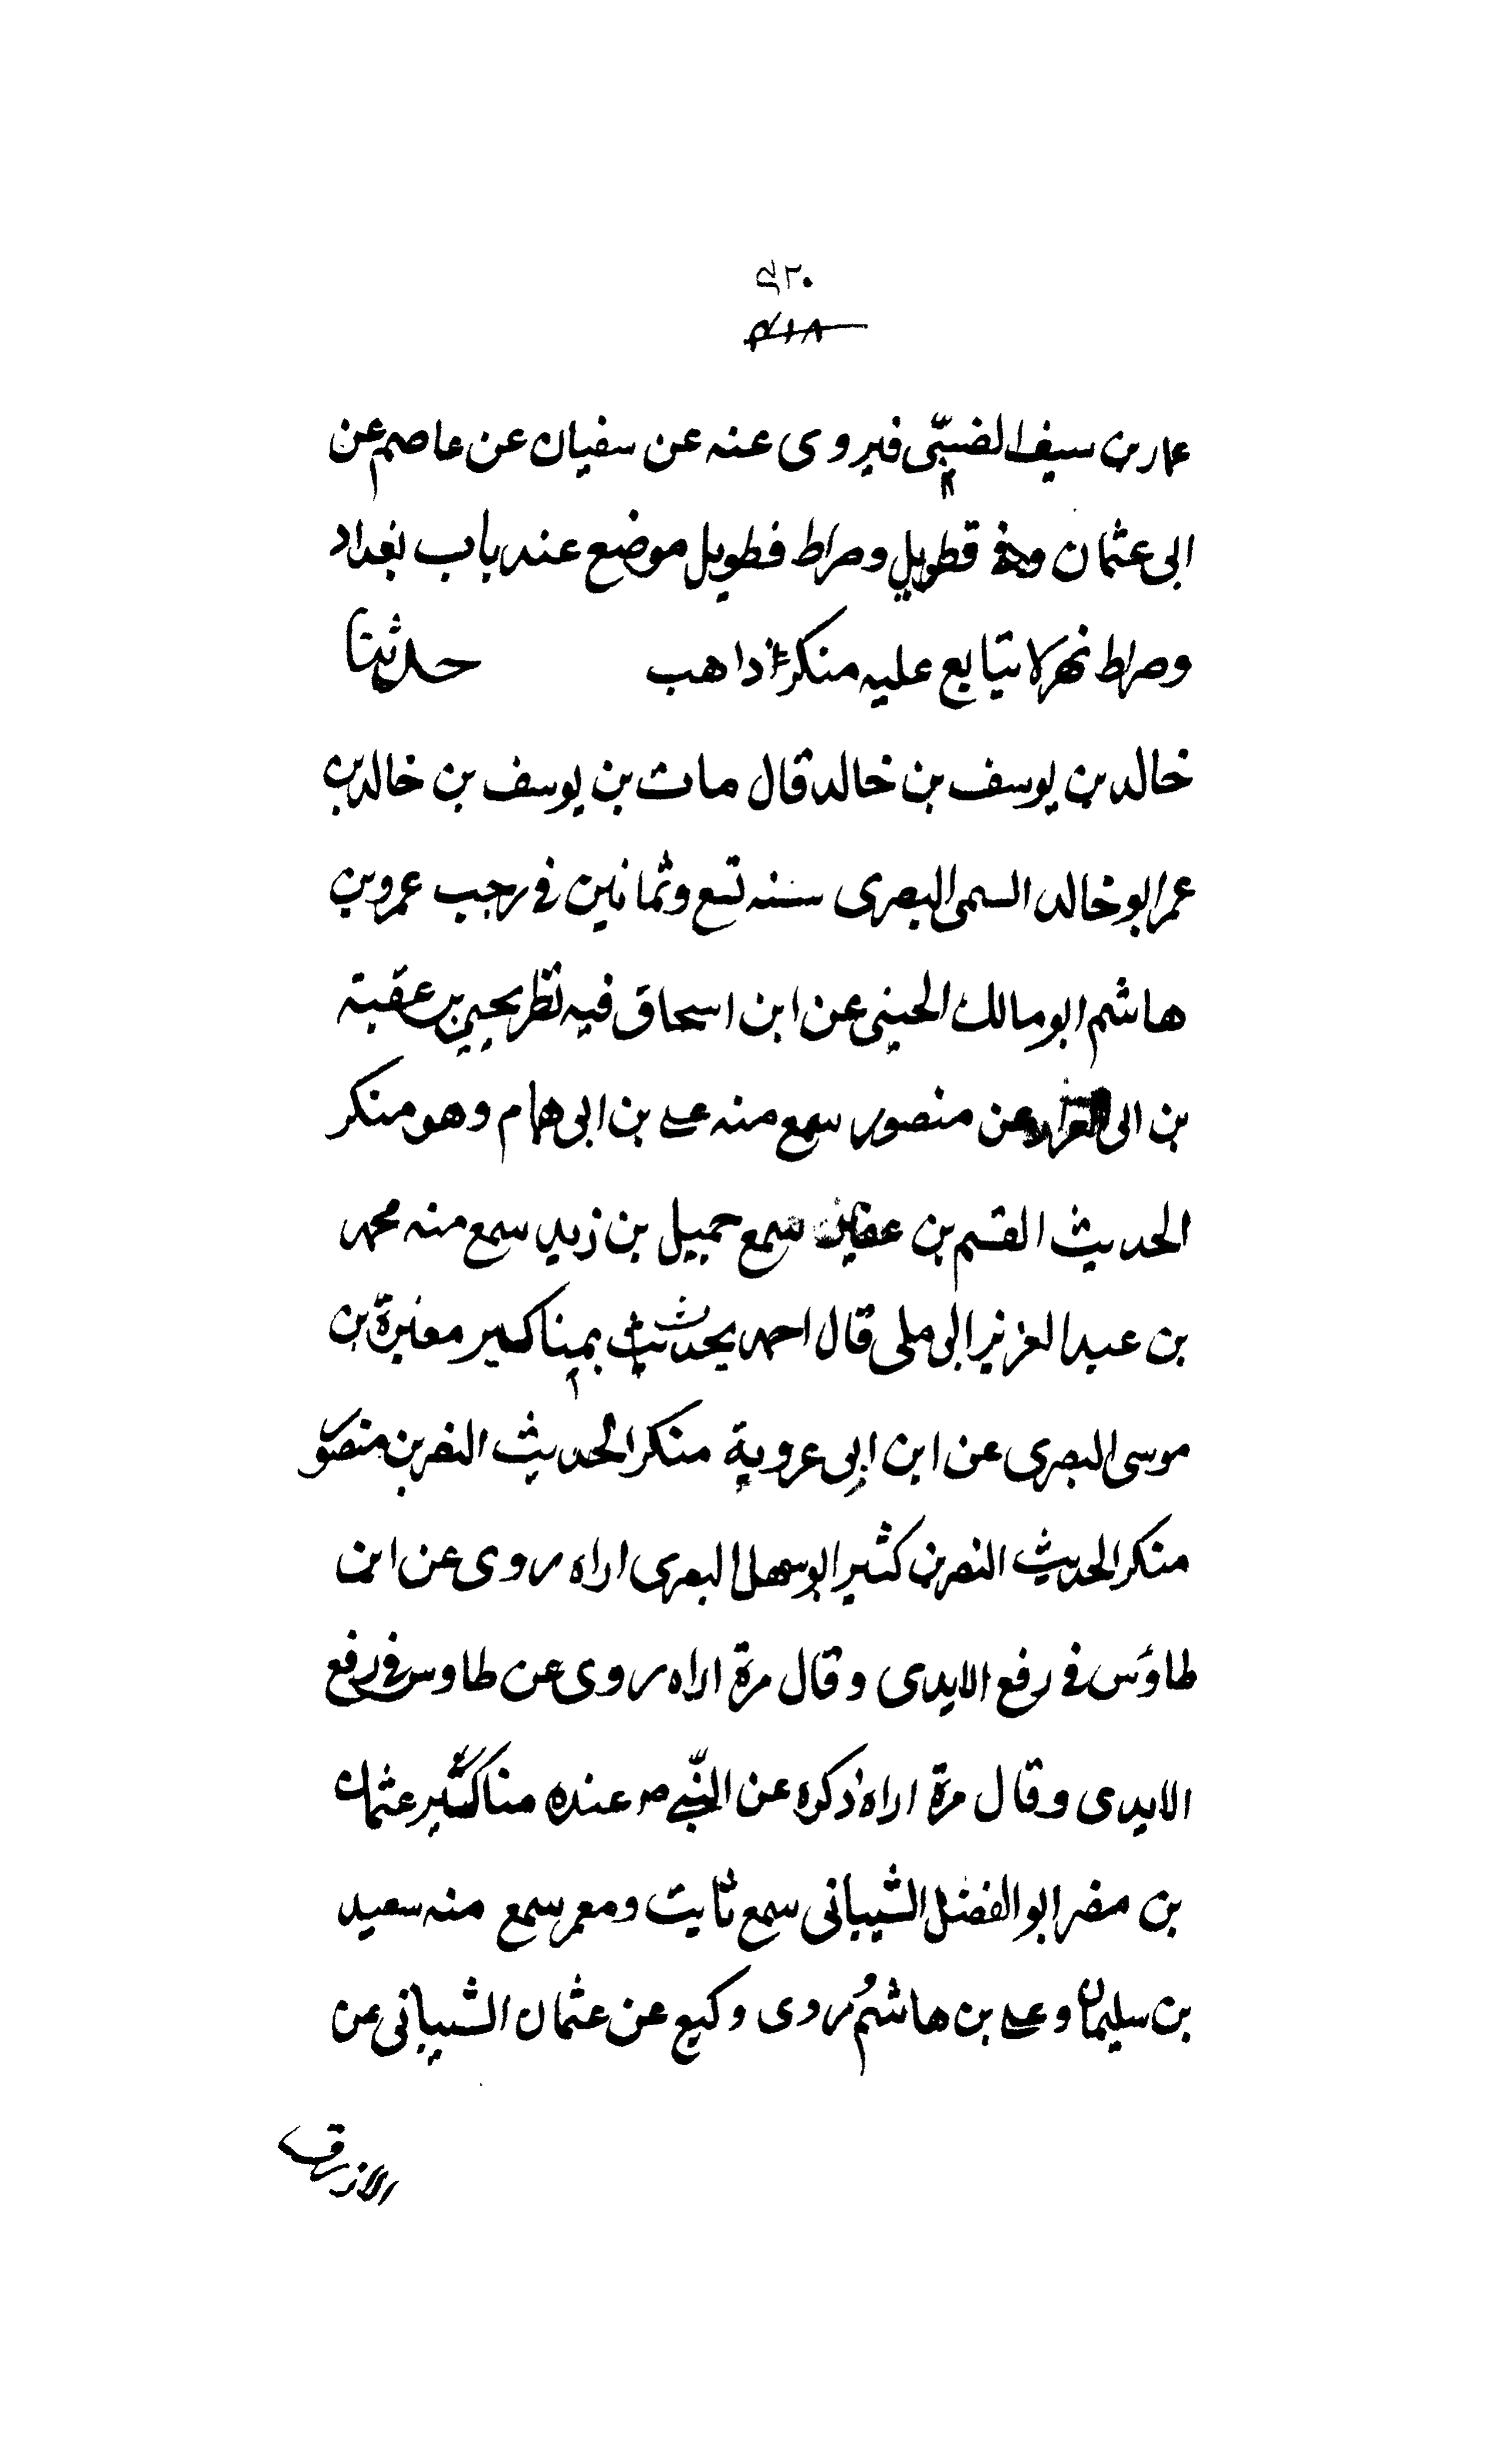 ٤٢٠
٤١٨
عمار بن سيف الضبّى فيروى عنه عن سفيان عن عاصم عن
ابى عثمان قطربل وصراط قطوبل موضع عند باب بغداد
وصراط نهر لا يتابع عليه منكر ذاهب حدثنا
خالد بن يوسف بن خالد قال مات بن يوسف بن خالد بن
عمر ابو خالد السمى البصرى سنه تسع وثمانين فى رجب عمرو بن
هاشم ابو مالك الحينى عن ابن اسحاق فيه نظر يحيى بن عقبة
بن ابى عن منصور سمع منه على بن ابى همام وهو منكر
الحديث القسم بن سمع جميل بن زيد سمع منه محمد
بن عبد العزيز الرملى قال احمد يحدث بمناكير مغيرة بن
موسى البصرى عن ابن ابى عروبة منكر الحديث النضر بن منصور
منكر الحديث النضر بن كثير ابو سهل البصرى اراه روى عن ابن
طاؤس فى رفع الايدى وقال مرة اراه روى عن طاوس فى رفع
الايدى وقال مرة اراه ذكره عن النبي ص عنده مناكير عثمان
بن مضر ابو الفضل الشيبانى سمع ثابت ومعمر سمع منه سعيد
بن سليمان وعلى بن هاشم روى وكيع عن عثمان الشيبانى عن
الازرق